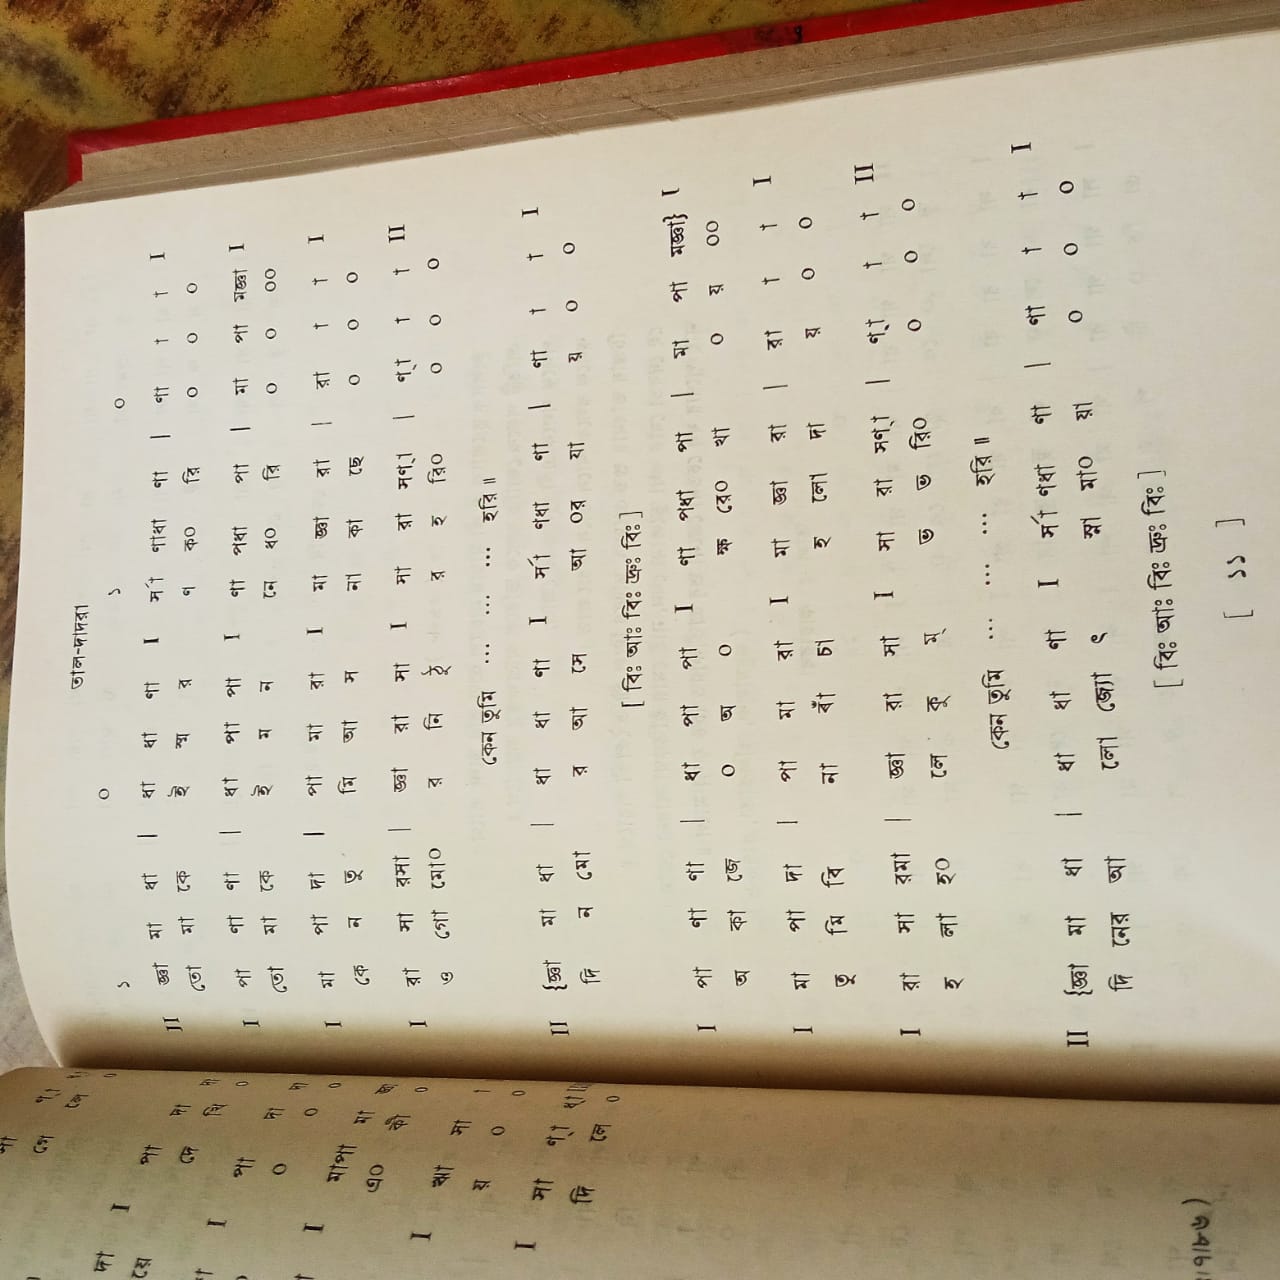 তাল-দাদরা
১ ০ ১ ০
II জ্ঞা মা ধা | ধা ধা ণা I র্সা ণাধা ণা | ণা া া I
তো মা কে ই স্ম র ণ ক০ রি ০ ০ ০
I পা ণা ণা | ধা পা পা I ণা পধা পা | মা পা মজ্ঞা I
তো মা কে ই ম ন নে ধ০ রি ০ ০ ০০
I মা পা দা | পা মা রা I মা জ্ঞা রা | রা া া I
কে ন তু মি আ স না কা ছে ০ ০ ০
I রা সা রসা | জ্ঞা রা সা I সা রা সণ্া | ণ্া া া II
ও গো মো০ র নি ঠু র হ রি০ ০ ০ ০
কেন তুমি ... ... ... হরি॥
II {জ্ঞা মা ধা | ধা ধা ণা I র্সা ণধা ণা | ণা া া I
দি ন মো র আ সে আ ০র যা য় ০ ০
[ বিঃ আঃ বিঃ দ্রুঃ বিঃ ]
I পা ণা ণা | ধা পা পা I ণা পধা পা | মা পা মজ্ঞা} I
অ কা জে ০ অ ০ ক্ষ রে০ খা ০ য় ০০
I মা পা দা | পা মা রা I মা জ্ঞা রা | রা া া I
তু মি বি না বাঁ চা হ লো দা য় ০ ০
I রা সা রমা | জ্ঞা রা সা I সা রা সণ্া | ণ্া া া II
হ লা হ০ লে কু ম্ ভ ভ রি০ ০ ০ ০
কেন তুমি ... ... ... হরি॥
II {জ্ঞা মা ধা | ধা ধা ণা I র্সা ণধা ণা | ণা া া I
দি নের আ লো জ্যো ৎ স্না মা০ য়া ০ ০ ০
[ বিঃ আঃ বিঃ দ্রুঃ বিঃ ]
[ ১১ ]